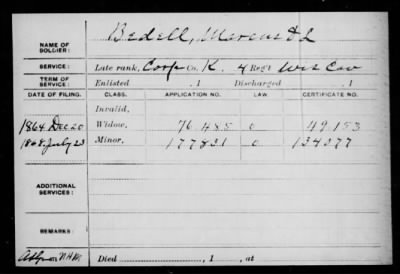 NAME OF SOLDIER: Bedell, Marcus
SERVICE: Late rank, Corp Co. K. 4 Reg't Wis Cav
TERM OF SERVICE: Enlisted , 1 Discharged , 1
DATE OF FILING. CLASS. APPLICATION NO. LAW. CERTIFICATE NO.
Invalid,
1864 Dec 20 Widow, 76 488 0 49153
1868 July 23 Minor, 177831 0 134377
ADDITIONAL SERVICES:
REMARKS:
Died , 1 , at